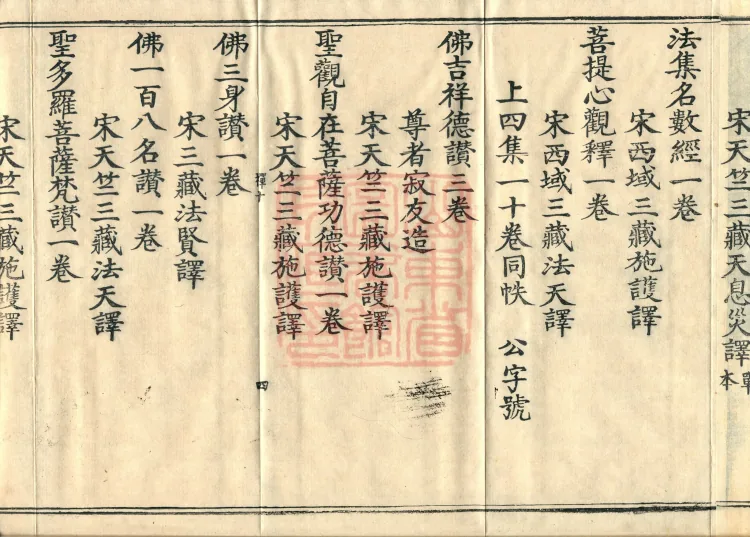 宋天竺三藏天息災譯
法集名數經一卷
宋西域三藏施護譯
菩提心觀釋一卷
宋西域三藏法天譯
上四集一十卷同帙 公字號
佛吉祥德讚三卷
尊者寂友造
宋天竺三藏施護譯
聖觀自在菩薩功德讚一卷
宋天竺三藏施護譯
四
佛三身讚一卷
宋三藏法賢譯
佛一百八名讚一卷
宋天竺三藏法天譯
聖多羅菩薩梵讚一卷
宋天竺三藏施護譯